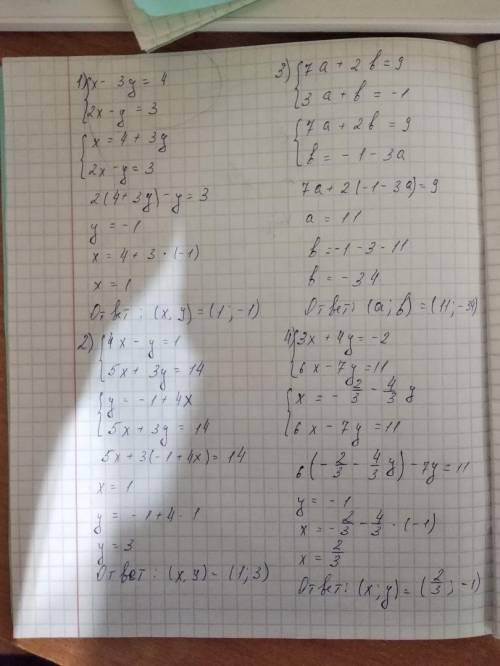 1) {x - 3y = 4
{2x - y = 3
{x = 4 + 3y
{2x - y = 3
2(4 + 3y) - y = 3
y = -1
x = 4 + 3 · (-1)
x = 1
Ответ: (x, y) = (1; -1)
2) {4x - y = 1
{5x + 3y = 14
{y = -1 + 4x
{5x + 3y = 14
5x + 3(-1 + 4x) = 14
x = 1
y = -1 + 4 · 1
y = 3
Ответ: (x, y) = (1; 3)
3) {7a + 2b = 9
{3a + b = -1
{7a + 2b = 9
{b = -1 - 3a
7a + 2(-1 - 3a) = 9
a = 11
b = -1 - 3 · 11
b = -34
Ответ: (a; b) = (11; -34)
4) {3x + 4y = -2
{6x - 7y = 11
{x = -2/3 - 4/3 y
{6x - 7y = 11
6(-2/3 - 4/3 y) - 7y = 11
y = -1
x = -2/3 - 4/3 · (-1)
x = 2/3
Ответ: (x; y) = (2/3; -1)